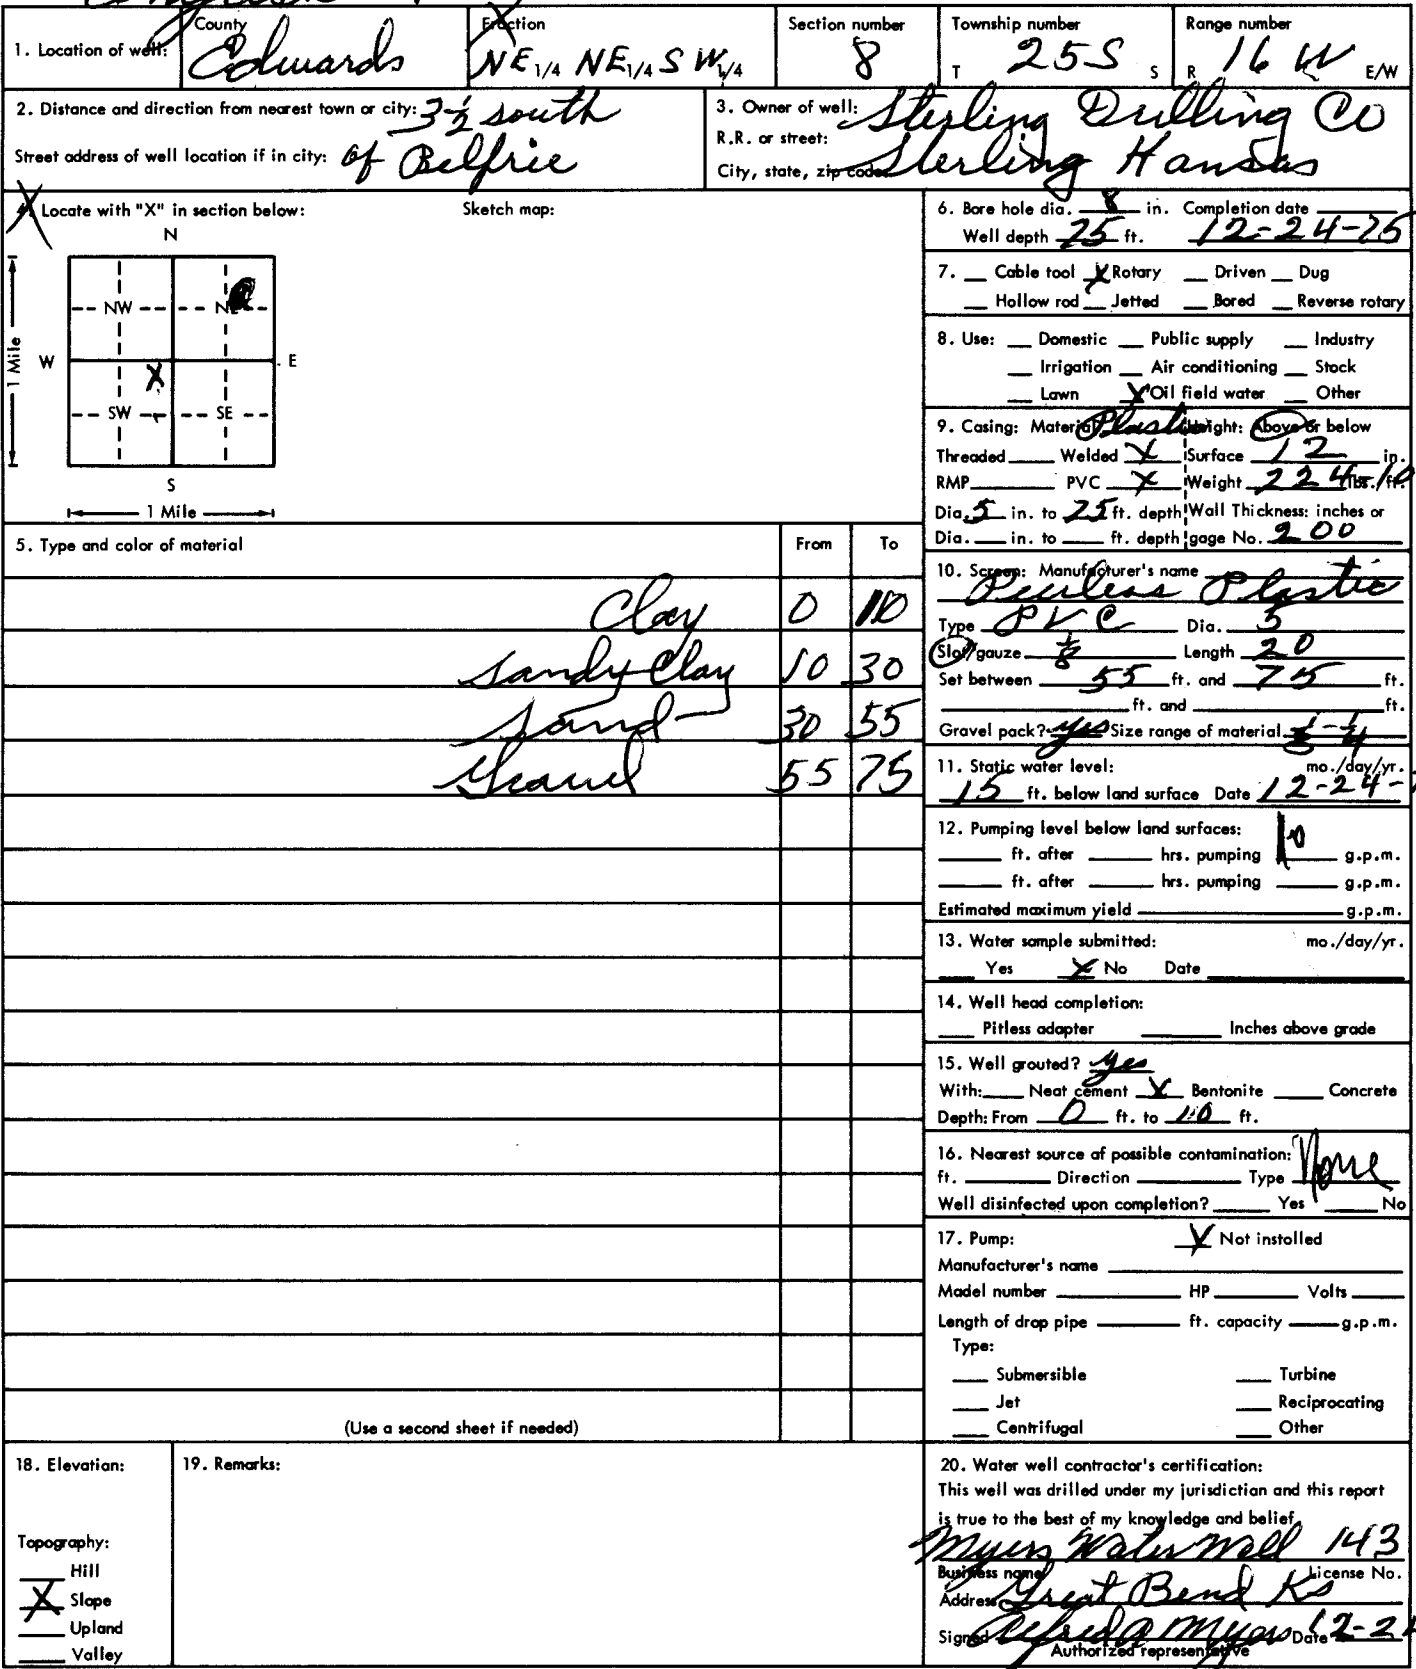 County Fraction Section number Township number Range number
1. Location of well: Edwards NE 1/4 NE 1/4 SW 1/4 8 T 25S S R 16 W E/W
2. Distance and direction from nearest town or city: 3 1/2 south
Street address of well location if in city: of Belfrie
3. Owner of well: Sterling Drilling Co
R.R. or street:
City, state, zip code: Sterling Kansas
4. Locate with "X" in section below: Sketch map:
N
NW
W E
1 Mile
X
SW SE
S
1 Mile
5. Type and color of material From To
Clay 0 10
Sandy Clay 10 30
Sand 30 55
Gravel 55 75
(Use a second sheet if needed)
6. Bore hole dia. 8 in. Completion date
Well depth 75 ft. 12-24-75
7. Cable tool X Rotary Driven Dug
Hollow rod Jetted Bored Reverse rotary
8. Use: Domestic Public supply Industry
Irrigation Air conditioning Stock
Lawn X Oil field water Other
9. Casing: Material Plastic Height: Above or below
Threaded Welded X Surface 12 in.
RMP PVC X Weight lbs./ft.
Dia. 5 in. to 75 ft. depth Wall Thickness: inches or
Dia. in. to ft. depth gage No. 200
10. Screen: Manufacturer's name
Peerless Plastic
Type PVC Dia. 5
Slot/gauze 1/8 Length 20
Set between 55 ft. and 75 ft.
ft. and ft.
Gravel pack? yes Size range of material 1/8 - 1/4
11. Static water level: mo./day/yr.
15 ft. below land surface Date 12-24-
12. Pumping level below land surfaces:
ft. after hrs. pumping g.p.m.
ft. after hrs. pumping g.p.m.
Estimated maximum yield g.p.m.
13. Water sample submitted: mo./day/yr.
Yes X No Date
14. Well head completion:
Pitless adapter Inches above grade
15. Well grouted? yes
With: Neat cement X Bentonite Concrete
Depth: From 0 ft. to 10 ft.
16. Nearest source of possible contamination:
ft. Direction Type None
Well disinfected upon completion? Yes No
17. Pump: X Not installed
Manufacturer's name
Model number HP Volts
Length of drop pipe ft. capacity g.p.m.
Type:
Submersible Turbine
Jet Reciprocating
Centrifugal Other
18. Elevation:
Topography:
Hill
X Slope
Upland
Valley
19. Remarks:
20. Water well contractor's certification:
This well was drilled under my jurisdiction and this report
is true to the best of my knowledge and belief.
Myers Water Well 143
Business name License No.
Address Great Bend Ks
Signed Alfred A Myers Date 12-24
Authorized representative